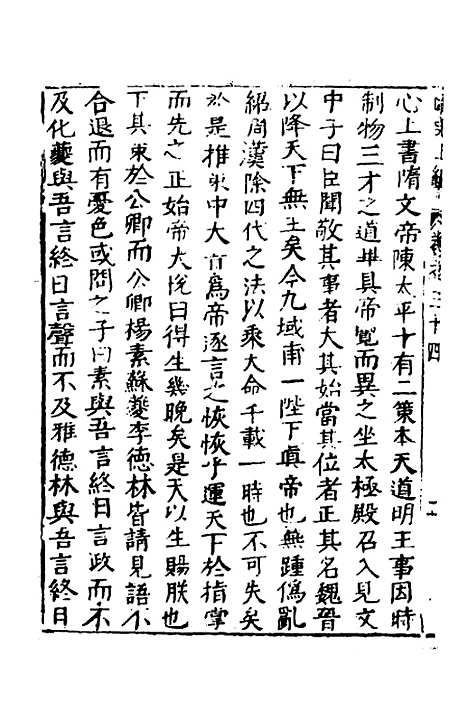 心上書隋文帝陳太平十有二策本天道明王事因時
制物三才之道畢具帝覽而異之坐太極殿召入見文
中子曰臣聞敬其事者大其始當其位者正其名魏晉
以降天下無主矣今九域甫一陛下真帝也無踵僞亂
紹周漢除四代之法以乘大命千載一時也不可失矣
於是推
中大
爲帝逐言之恢恢乎運天下於指掌
而先之正始帝大悅曰得生幾晚矣是天以生賜朕也
下其
於公卿而公卿楊素蘇夔李德林皆請見語不
合退而有憂色或問之子曰素與吾言終日言政而不
及化夔與吾言終日言聲而不及雅德林與吾言終日
三十四